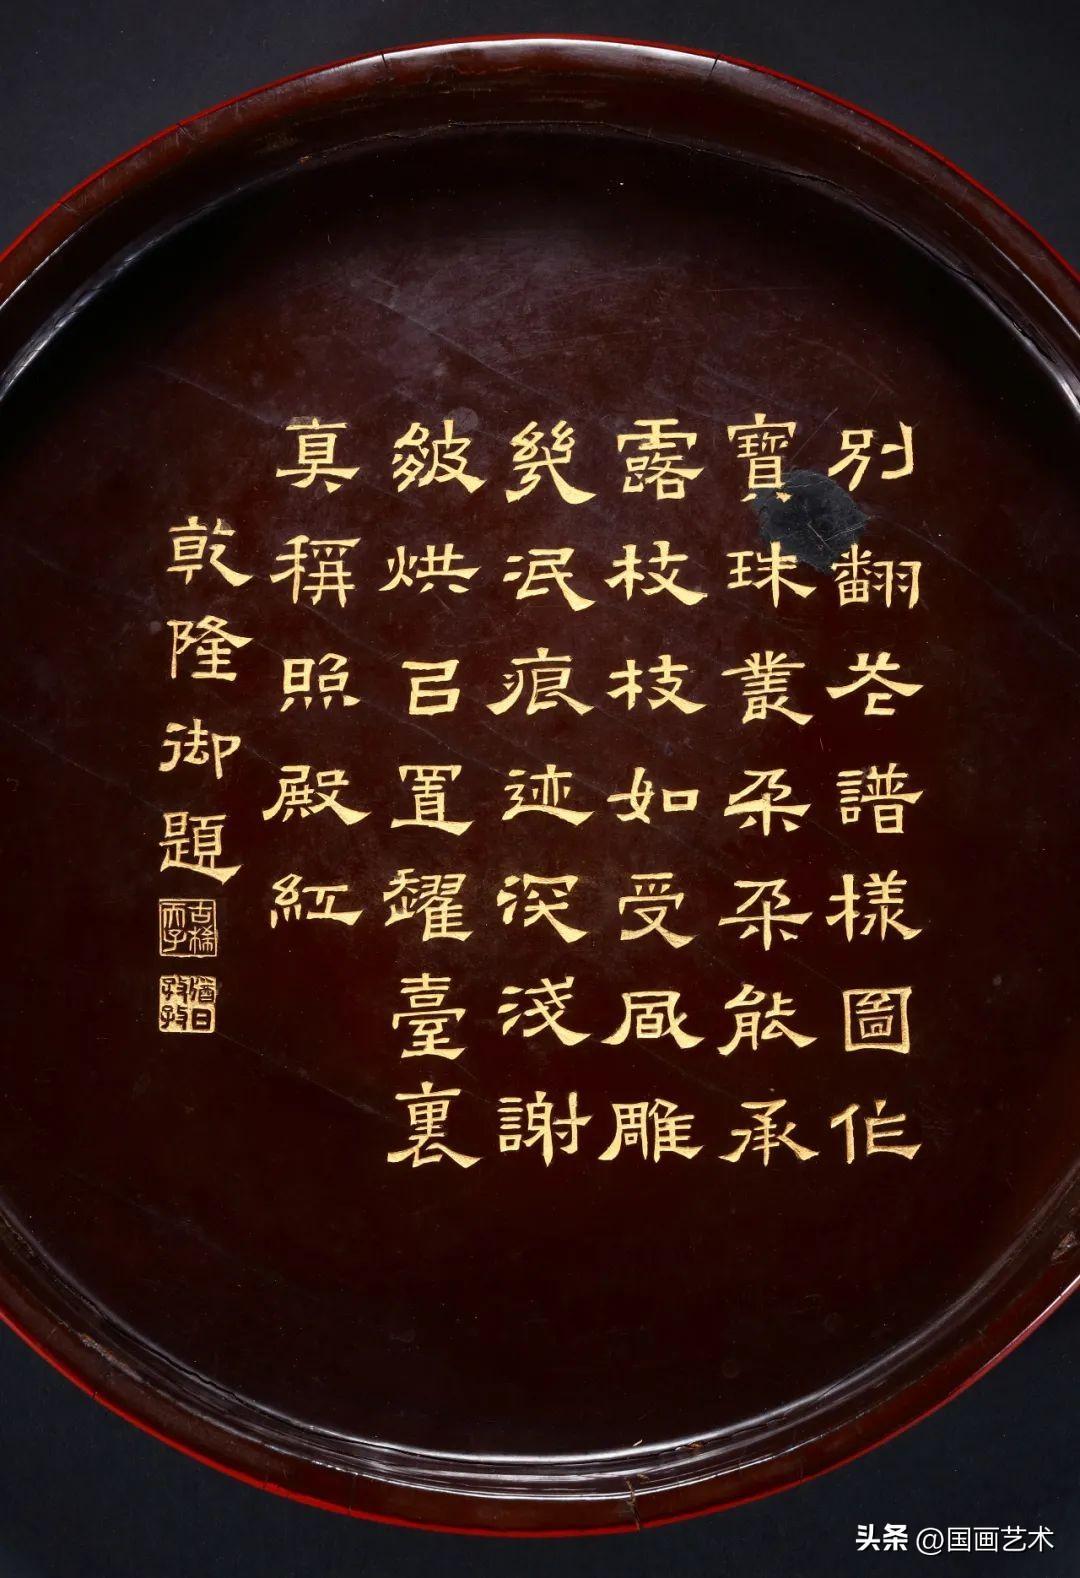 別翻花譜樣圖作
寶珠叢朵朵能承
露枝枝如受風雕
幾泯痕迹深淺謝
皴烘㠯置耀臺裏
真稱照殿紅
乾隆御題
古稀天子
猶日孜孜
头条 @国画艺术